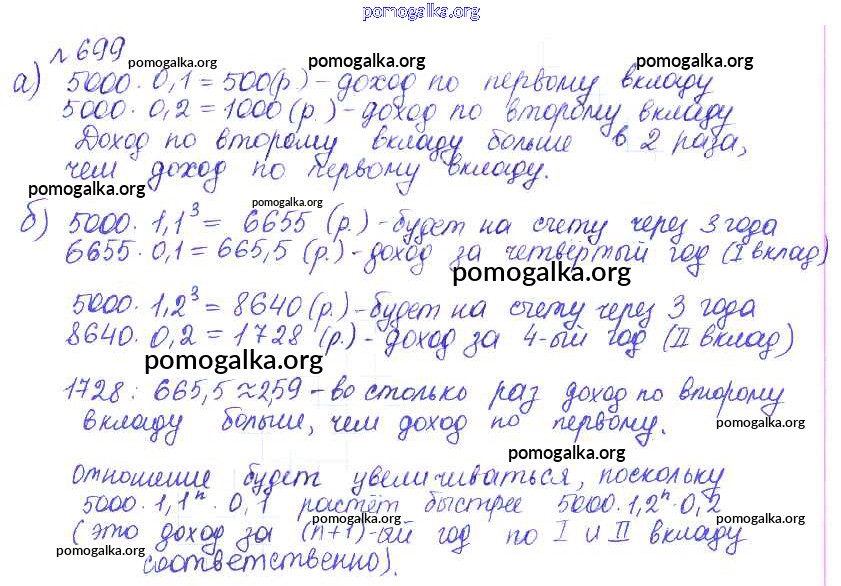 pomogalka.org
№ 699
pomogalka.org pomogalka.org pomogalka.org
а) 5000 · 0,1 = 500(р) - доход по первому вкладу
5000 · 0,2 = 1000 (р.) - доход по второму вкладу
Доход по второму вкладу больше в 2 раза,
чем доход по первому вкладу.
pomogalka.org
pomogalka.org
б) 5000 · 1,1³ = 6655 (р.) - будет на счету через 3 года
6655 · 0,1 = 665,5 (р.) - доход за четвёртый год (I вклад)
pomogalka.org
5000 · 1,2³ = 8640 (р.) - будет на счету через 3 года
8640 · 0,2 = 1728 (р.) - доход за 4-ый год (II вклад)
pomogalka.org
1728 : 665,5 ≈ 2,59 - во столько раз доход по второму
вкладу больши, чем доход по первому.
pomogalka.org
pomogalka.org
Отношение будет увеличиваться, поскольку
5000 · 1,1ⁿ · 0,1 растёт быстрее 5000 · 1,2ⁿ · 0,2
pomogalka.org pomogalka.org
(это доход за (n+1)-ый год по I и II вкладу
pomogalka.org
соответственно).